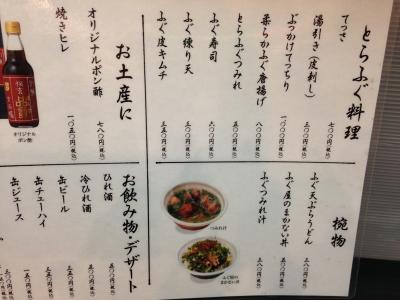 とらふぐ料理
てっさ 七〇〇円(税込)
湯引き(皮刺し) 三五〇円(税込)
ぶっかけてっちり 一〇〇〇円(税込)
柔らかふぐ唐揚げ 八〇〇円(税込)
とらふぐつみれ 五〇〇円(税込)
ふぐ寿司 六〇〇円(税込)
ふぐ練り天 三五〇円(税込)
ふぐ皮キムチ 三五〇円(税込)
お土産に
オリジナルポン酢 七八〇円(税込)
焼きヒレ 一〇五〇円(税込)
オリジナル
ポン酢
椀物
ふぐ天ぷらうどん
ふぐ屋のまかない丼
ふぐつみれ汁
つみれ汁
ふぐ屋の
まかない丼
お飲み物・デザート
ひれ酒 五〇〇円(税込)
冷ひれ酒 五〇〇円(税込)
缶ビール
缶チューハイ
缶ジュース